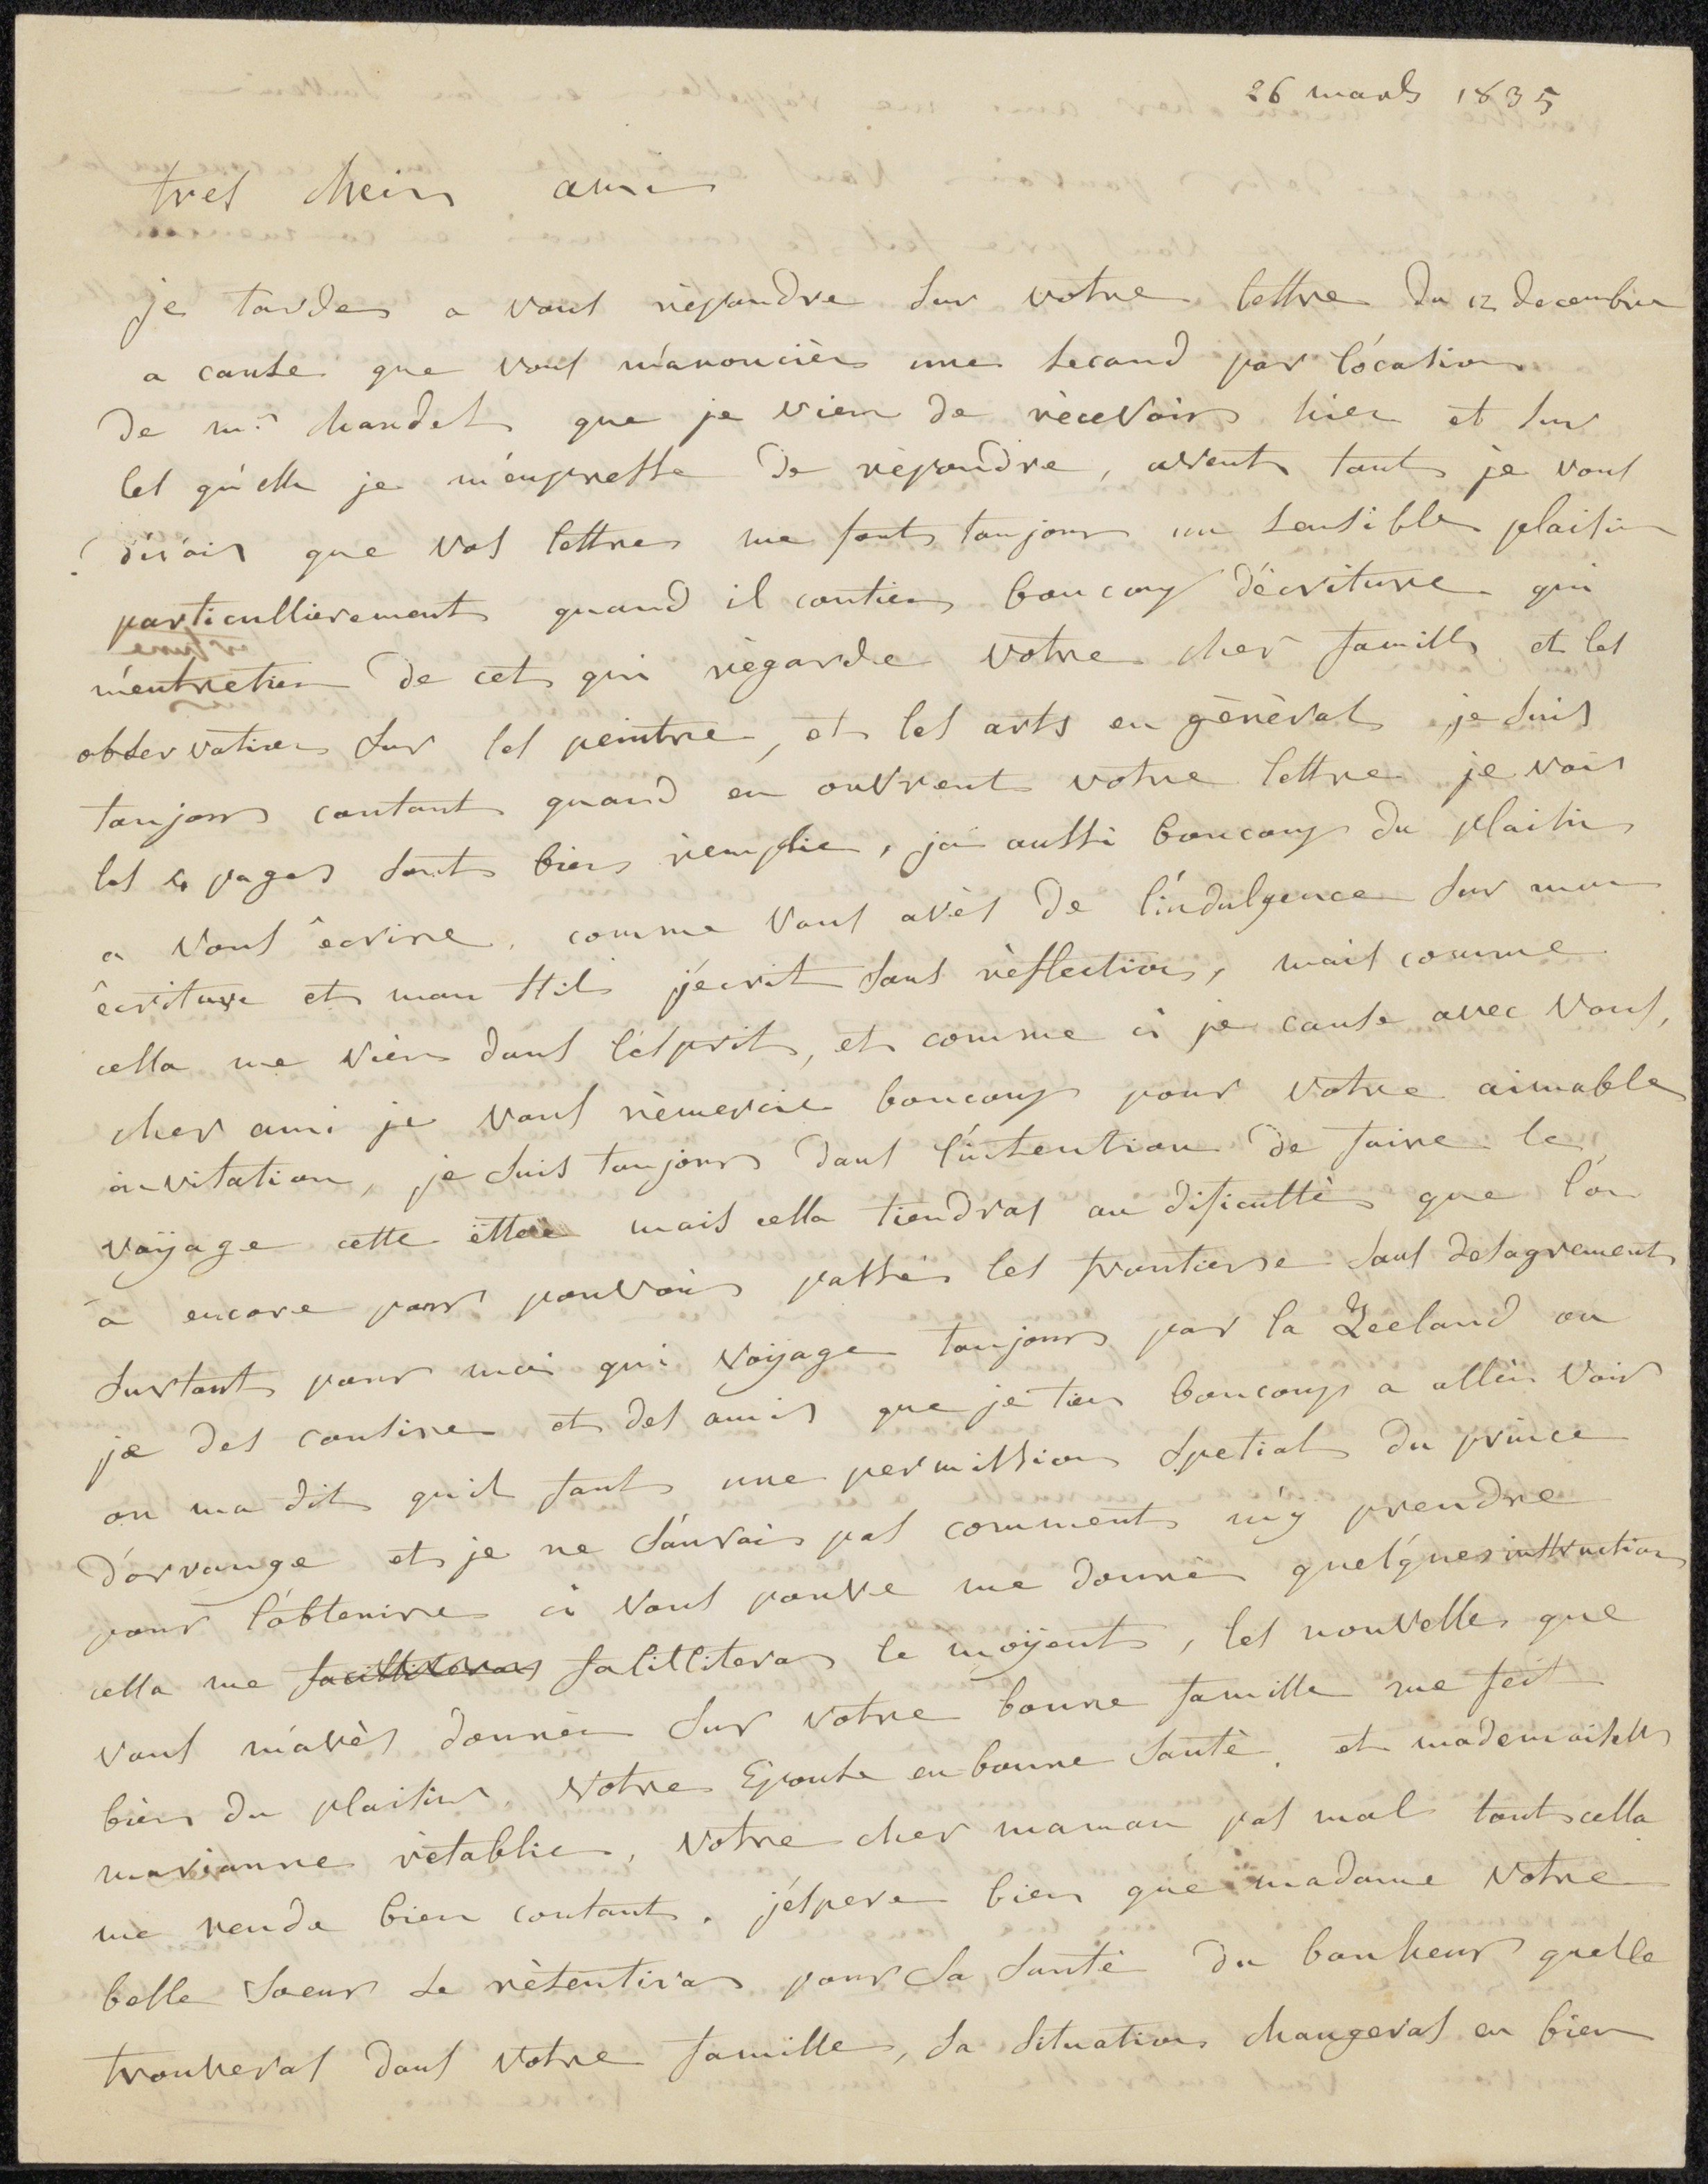 26 mars 1835
tres cheir ami
je tarde a vous rèpondre sur votre lettre du 12 decembre
a cause que vous m'anoncièr une second par l'ócasion
de mr. chandel que je vien de rècevoir hier et sur
les qu'elle je m'empresse de rèpondre, avent tout je vous
dirais que vos lettres me font toujours un sensible plaisir
particullierement quand il contien boucoup d'écriture qui
m'entretien de cet qui règarde votre cher famille et les
observation sur les peintre, et les arts en gènèral je suis
toujours contant quand en ouvrent votre lettre je vois
les 4 pages sont bien rèmplie, jai aussi boucoup du plaisir
a vous êcrire, comme vous avès de l'indulgence sur mon
êcriture et mon stil j'ecrit sans rèflection, mais comme
cella me vien dans l'ésprit, et comme ci je cause avec vous,
cher ami je vous rèmercie boucoup pour votre aimable
invitation, je suis toujours dans l'intention de faire le
voÿage cette ètté mais cella tiendras au dificultè que l'on
à encore pour pouvoir passer les frontierre sans desagrement
surtout pour moi qui voÿage toujours par la Zeeland ou
jæ des cousine et des amis que je tien boucoup a allèr voir
on ma dit qu'il faut une permission spetial du prince
d'orrange et je ne sauvrai pas comment m'y prendre
pour l'obtenire ci vous pouve me donnè quelques instruction
cella me facilliteras falilliteras le moÿent, les nouvelles que
vous m'avès donnèr sur votre bonne famille me fait
bien du plaisir, votre Epouse en bonne santè, et mademoiselle
marianne rètablie, votre cher maman pas mal tout cella
me rende bien contant. j'éspere bien que madame votre
belle soeur se rèsentiras pour sa santé du bonheur quelle
trouveras dans votre famille, sa situation changeras en bien